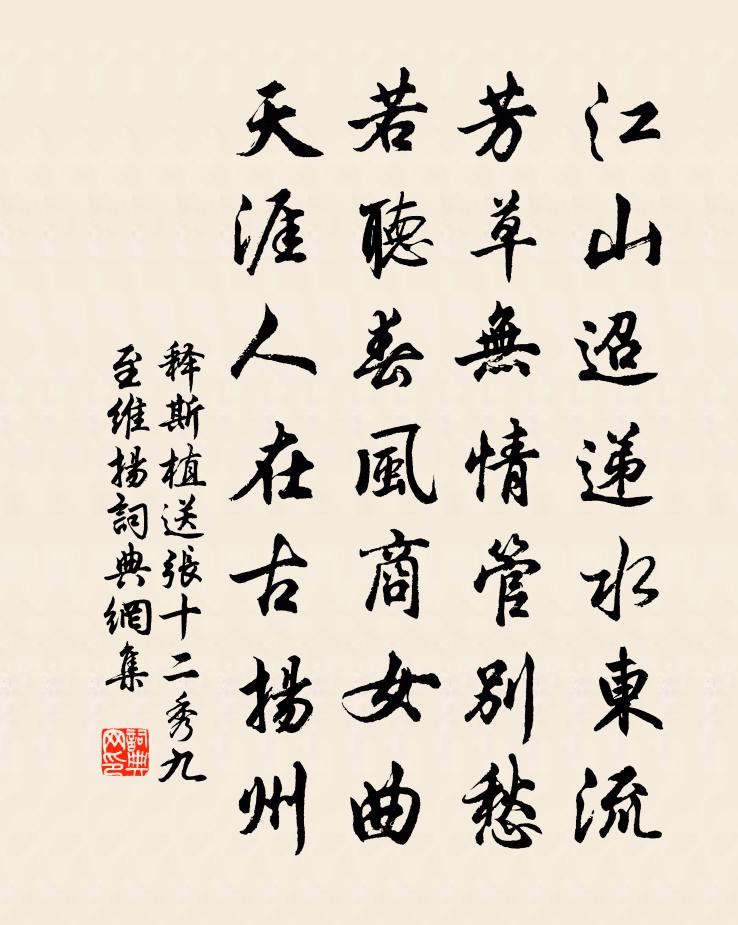 江山迢递水東流
芳草無情管别愁
若聽春風商女曲
天涯人在古揚州
释斯植送張十二秀九
至維揚詞典網集
詞典
网印